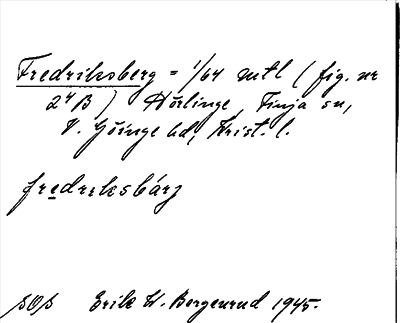 Fredriksberg = 1/64 mtl (fig. nr
2⁴B) Hörlinge, Finja sn,
V. Göinge hd, Krist. l.
fredriksbärj
SOS Erik W. Bergenrud 1945.